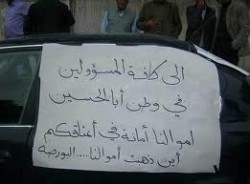 الى كافة المسؤولين
في وطن أبا الحسين
اموالنا أمانة في أعناقكم
أين ذهبت أموالنا....البورصه